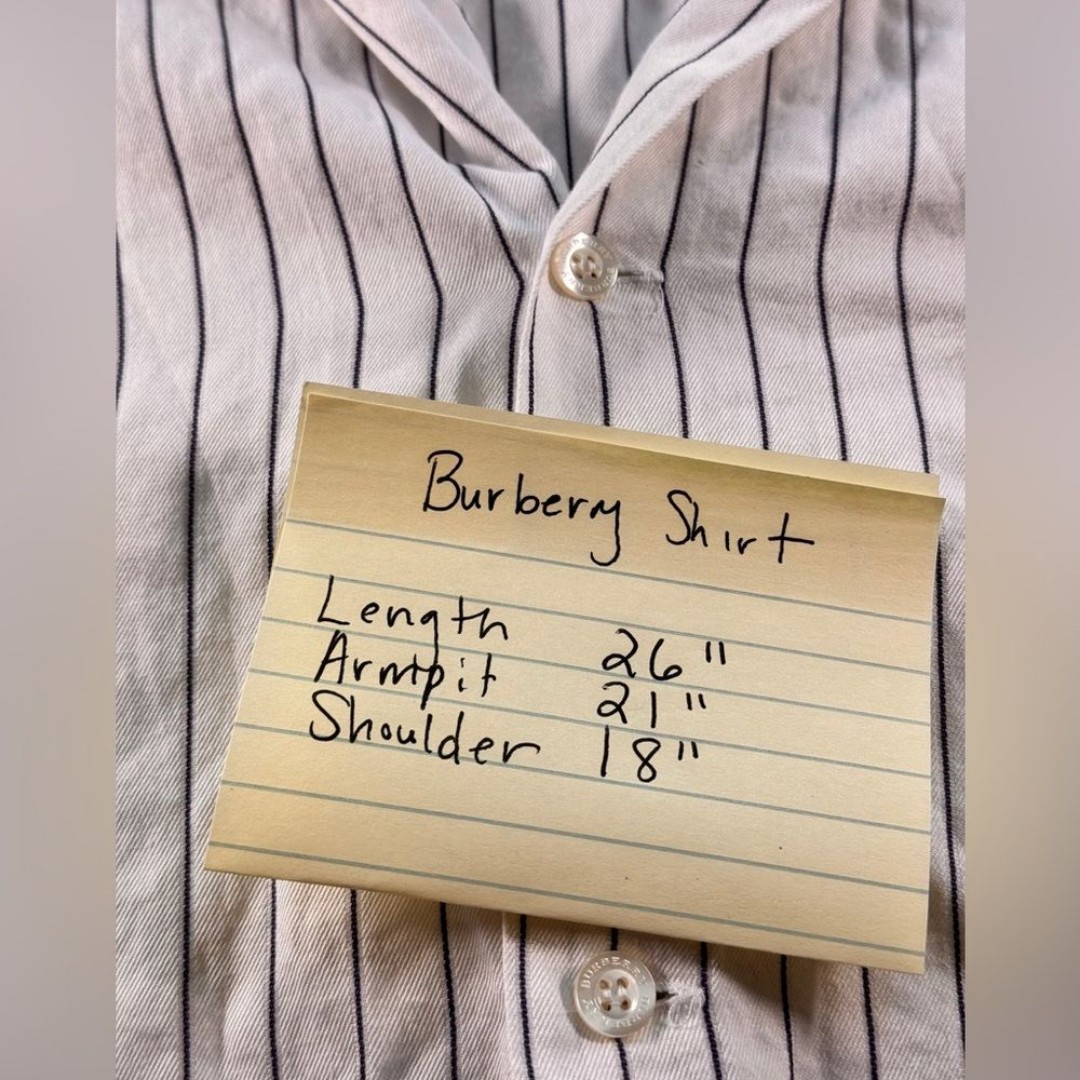 Burberry Shirt
Length 26"
Armpit 21"
Shoulder 18"
BURBERRY